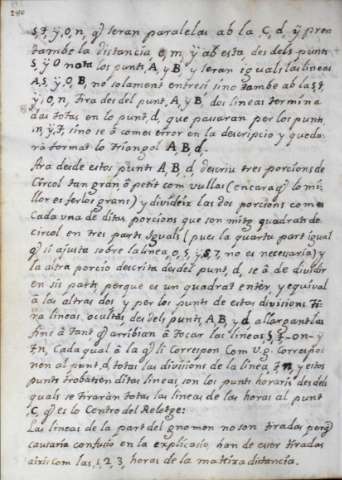 240
S, 7, ÿ, O, n, q̃ seran paralelas ab la C, d, ÿ pren
tambe la distancia e, m, ÿ ab esta, des dels punts
S, ÿ O nota los punts, A, ÿ B, ÿ seran iguals las lineas
A, S, ÿ, O, B, no solament entre si sino tambe ab las, 7,
ÿ, O, n, tira des del punt, A, ÿ B, dos lineas termina
das totas en lo punt, d, que pasaran per los punts,
n, ÿ, 7, sino se á comes error en la descripcio y queda
rá format lo triangol A, B, d.
Ara desde estos punts A, B, d, descriu tres porcions de
Circol tan gran ó petit com vullas (encara q̃ lo mi
llor es ferlos grans) y divideix las dos porcions como
Cada una de ditas porcions que son mitg quadrats de
circol en tres parts iguals (pues la quarta part igual
q̃ si ajusta sobre la linea, O, S, ÿ, 7, no es necesaria) y
la altra porcio descrita desdel punt, d, se á de dividir
en sis parts, perque es un quadrat enter, y equival
á las altras dos y per los punts de estas divisions ti
ra lineas, ocultas des dels punts, A, B, y d, allargantlas
fins á tant q̃ arribian á tocar las lineas S, 7 - O n - y
7 n, Cada qual á la q̃ li correspon Com V. g. Correspo
non al punt, d, totas las divisions de la linea, 7, n, y estos
punts trobats en ditas lineas, son los punts horaris des dels
quals se tiraràn totas las lineas de las horas al punt
C, q̃ es lo Centro del Relotge:
Las lineas de la part del gnomon no son tiradas perq̃
causaria confusio en la explicasio, han de ever tiradas
aixis com las, 1, 2, 3, horas de la mateixa distancia.